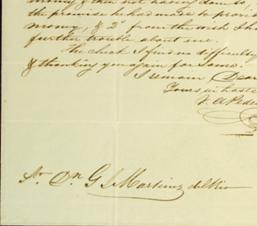 money & then not having done so
the promise he has made to provi
money, & 2d from the wish I h
further trouble about me.
The check I find no difficulty
& thanking you again for same.
I remain Dear
Yours in haste
Sr. Dn. G L Martinez del Rio